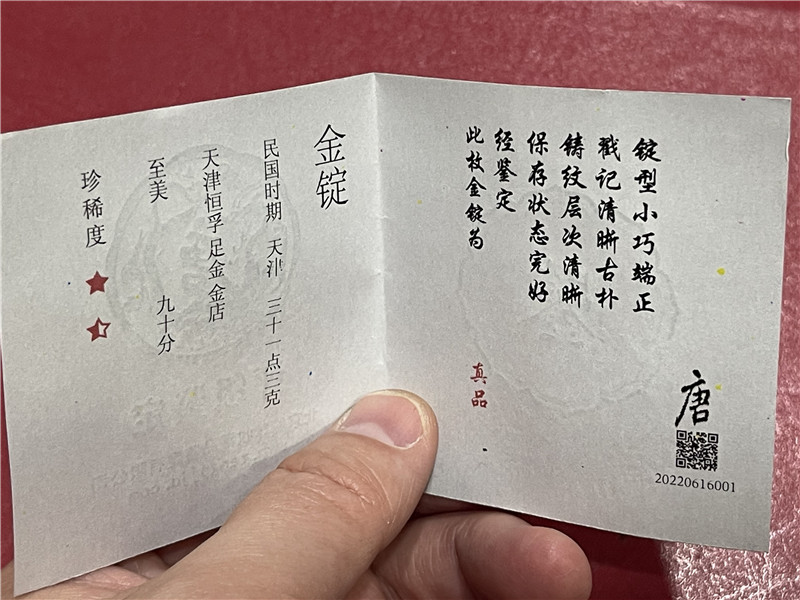 锭型小巧端正
戳记清晰古朴
铸纹层次清晰
保存状态完好
经鉴定
此枚金锭为 真品
唐
20220616001
金锭
民国时期 天津 三十一点三克
天津恒孚 足金 金店
至美 九十分
珍稀度